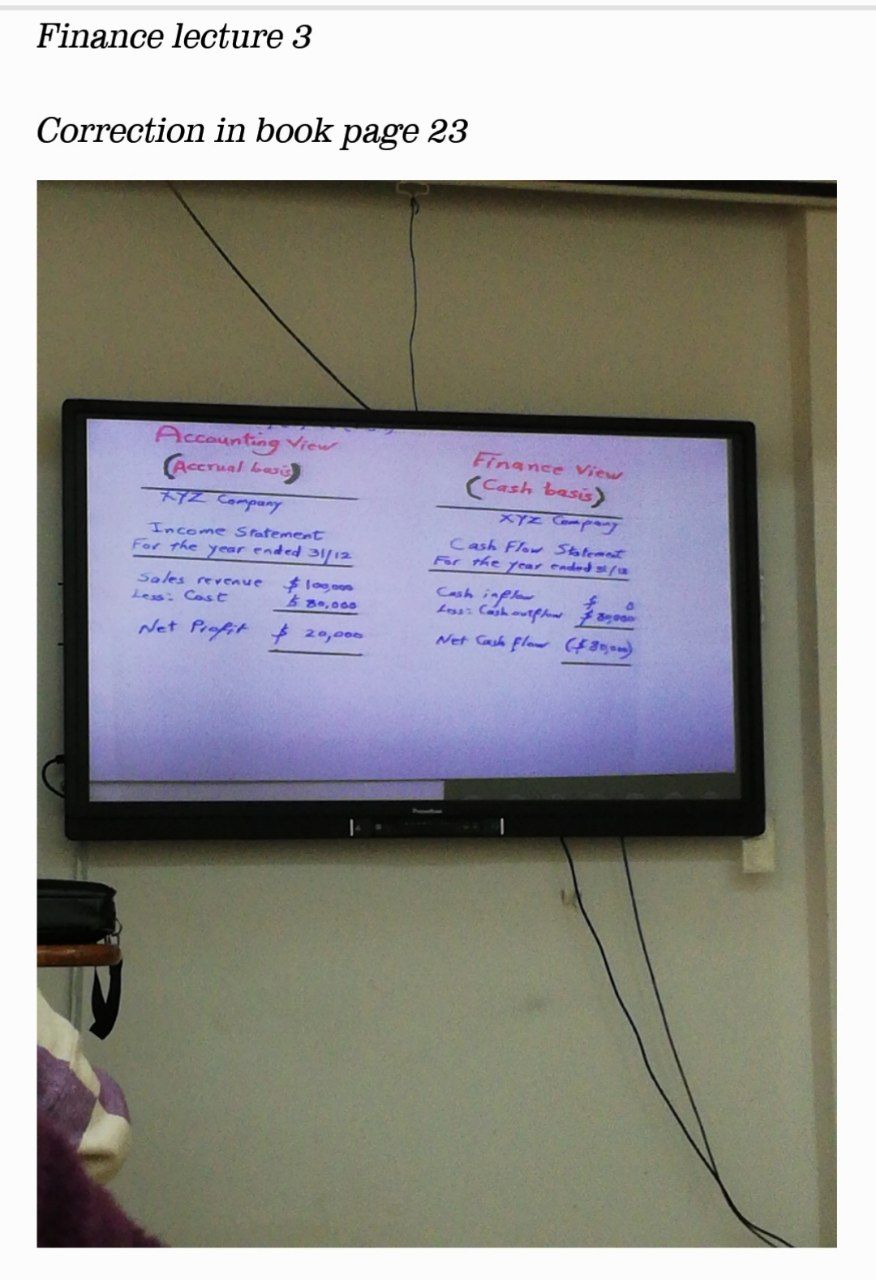 Finance lecture 3
Correction in book page 23
Accounting View
(Accrual basis)
XYZ Company
Income Statement
For the year ended 31/12
Sales revenue $ 100,000
Less: Cost $ 80,000
Net Profit $ 20,000
Finance View
(Cash basis)
XYZ Company
Cash Flow Statement
For the year ended 31/12
Cash inflow $ 0
Less: Cash outflow $ 80,000
Net Cash flow ($ 80,000)